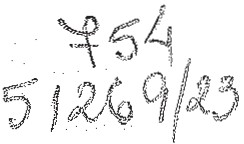 754
51269/23